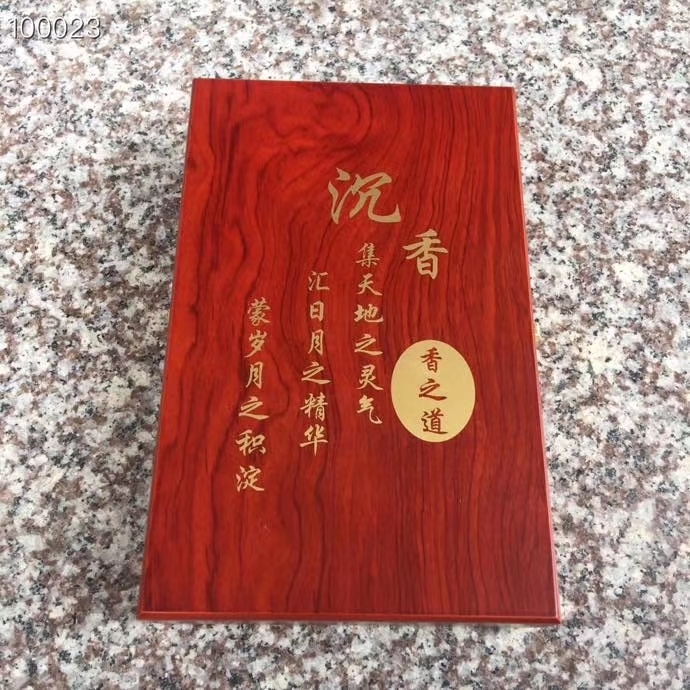 100023
沉香
集天地之灵气
汇日月之精华
蒙岁月之积淀
香之道